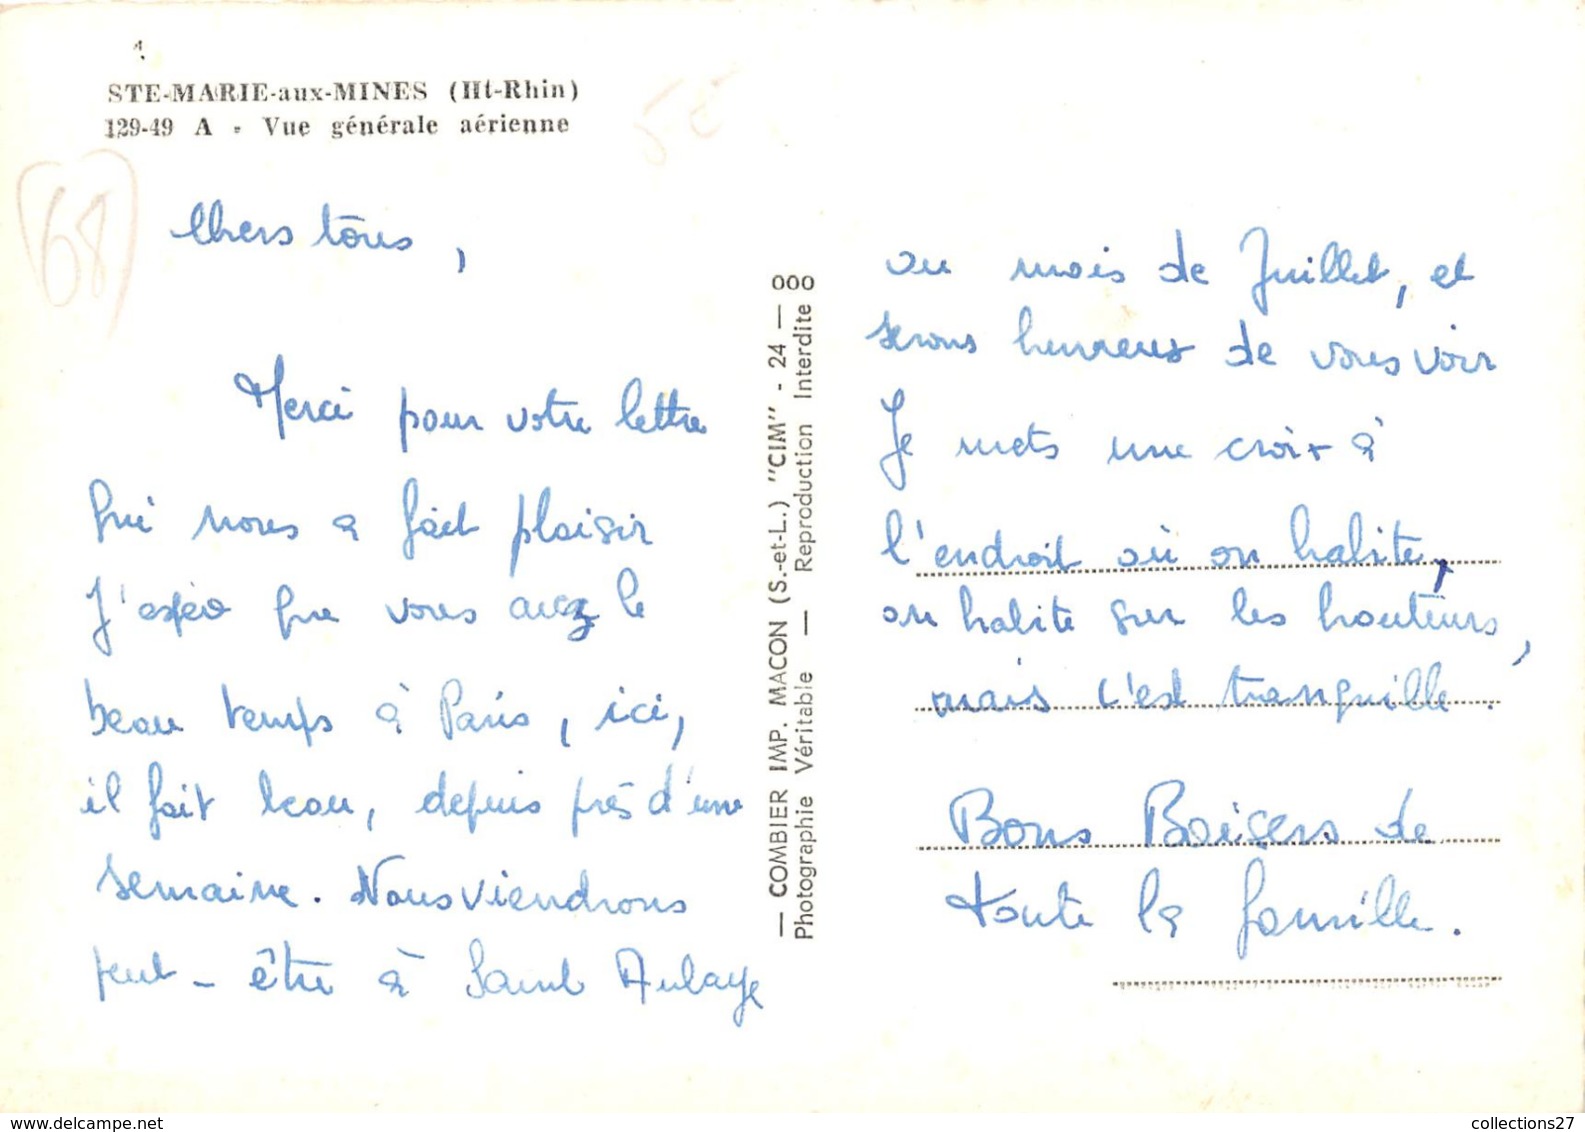 STE-MARIE-aux-MINES (Ht-Rhin)
129-49 A - Vue générale aérienne
5€
68
Chers tous,
Merci pour votre lettre
qui nous a fait plaisir
J'espère que vous avez le
beau temps à Paris, ici,
il fait beau, depuis près d'une
semaine. Nous viendrons
peut-être à Saint Aulaye
— COMBIER IMP. MACON (S.-et-L.) "CIM" - 24 — 000
Photographie Véritable — Reproduction Interdite
au mois de Juillet, et
serons heureux de vous voir
Je mets une croix à
l'endroit où on habite,
on habite sur les hauteurs,
mais c'est tranquille.
Bons Baisers de
toute la famille.
collections27